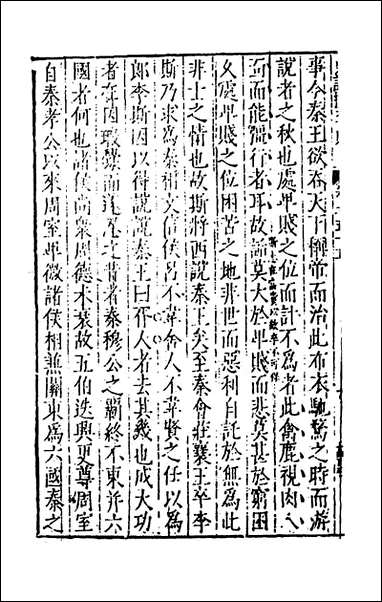 事今秦王欲吞天下稱帝而治此布衣馳騖之時而游
說者之秋也處卑賤之位而計不為者此禽鹿視肉人
面而能彊行者耳故詬莫大於卑賤而悲莫甚於窮困
久處卑賤之位困苦之地非世而惡利自託於無為此
非士之情也故斯將西說秦王矣至秦會莊襄王卒李
斯乃求為秦相文信侯呂不韋舍人不韋賢之任以為
郎李斯因以得說說秦王曰胥人者去其幾也成大功
者在因瑕釁而遂忍之昔者秦穆公之霸終不東并六
國者何也諸侯尚衆周德未衰故五伯迭興更尊周室
自秦孝公以來周室卑微諸侯相兼關東為六國秦之